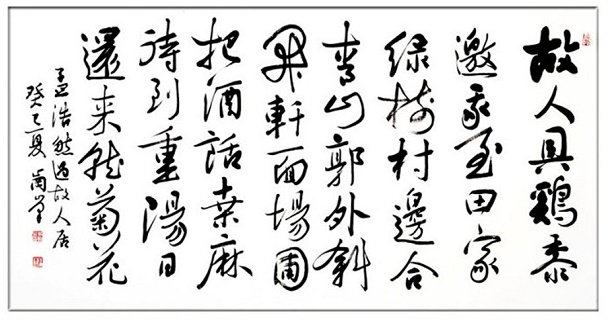 故人具鷄黍
邀我至田家
绿树村邊合
青山郭外斜
開軒面場圃
把酒話桑麻
待到重陽日
還来就菊花
孟浩然過故人居
癸巳夏